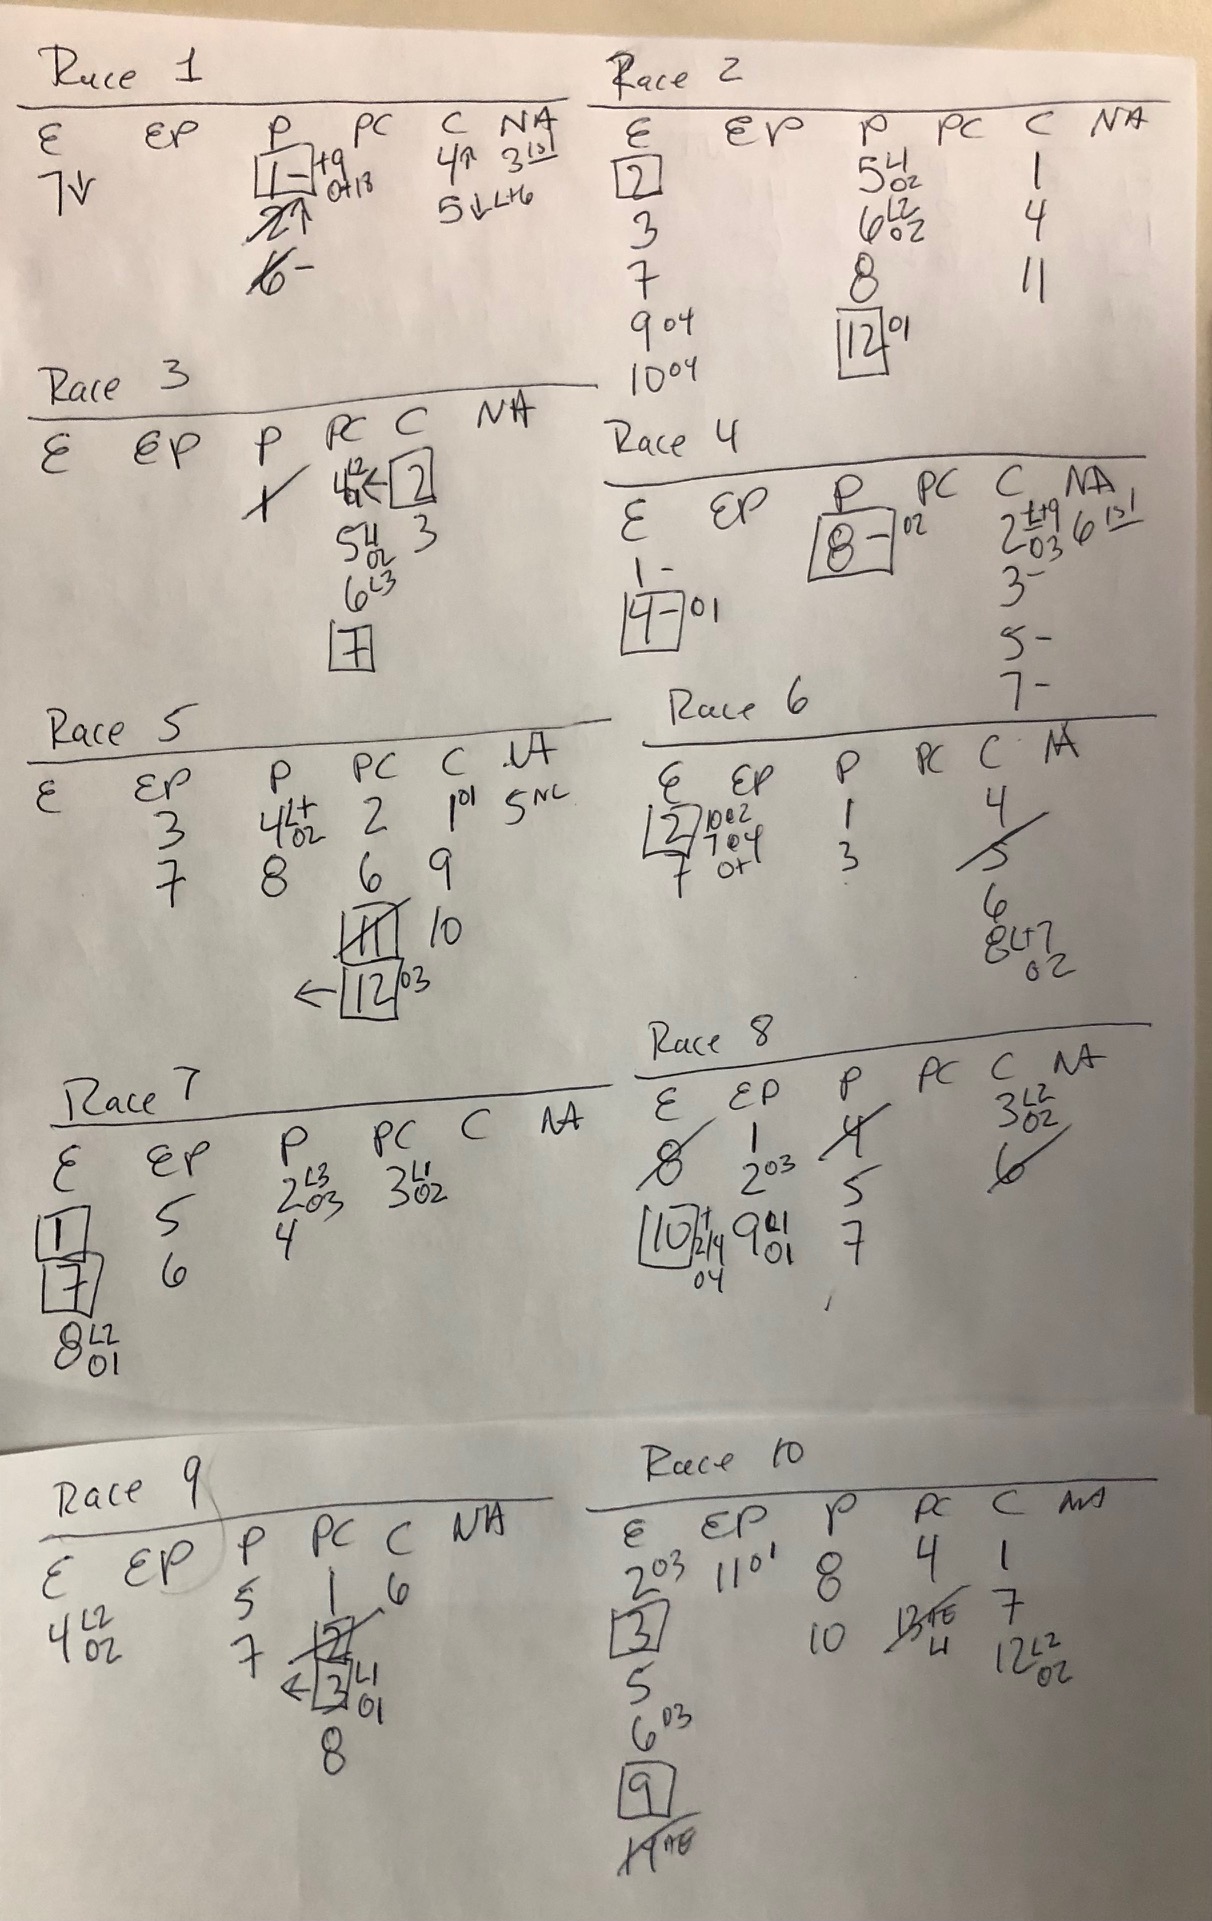 Race 1
E EP P PC C NA
7↓ 1- +9 0+18 4↑ 3 1st
2↑ 5↓ L+6
6-
Race 2
E EP P PC C NA
2 5 L1 02 1
3 6 L2 02 4
7 8 11
9 04 12 01
10 04
Race 3
E EP P PC C NA
1 4 L2 ← 2
5 L1 02 3
6 L3
7
Race 4
E EP P PC C NA
1- 8- 02 2 L+9 03 6 1st
4- 01 3-
5-
7-
Race 5
E EP P PC C NA
3 4 L+ 02 2 1 01 5 NL
7 8 6 9
11 10
← 12 03
Race 6
E EP P PC C NA
2 1 4
7 0+ 3 5
6
8 L+7 02
Race 7
E EP P PC C NA
1 5 2 L3 03 3 L1 02
7 6 4
8 L2 01
Race 8
E EP P PC C NA
8 1 4 3 L2 02
2 03 5 6
10 + 2/4 04 9 L1 01 7
Race 9
E EP P PC C NA
4 L2 02 5 1 6
7 2
← 3 L1 01
8
Race 10
E EP P PC C NA
2 03 11 01 8 4 1
3 10 13 AE L1 7
5 12 L2 02
6 03
9
14 AE